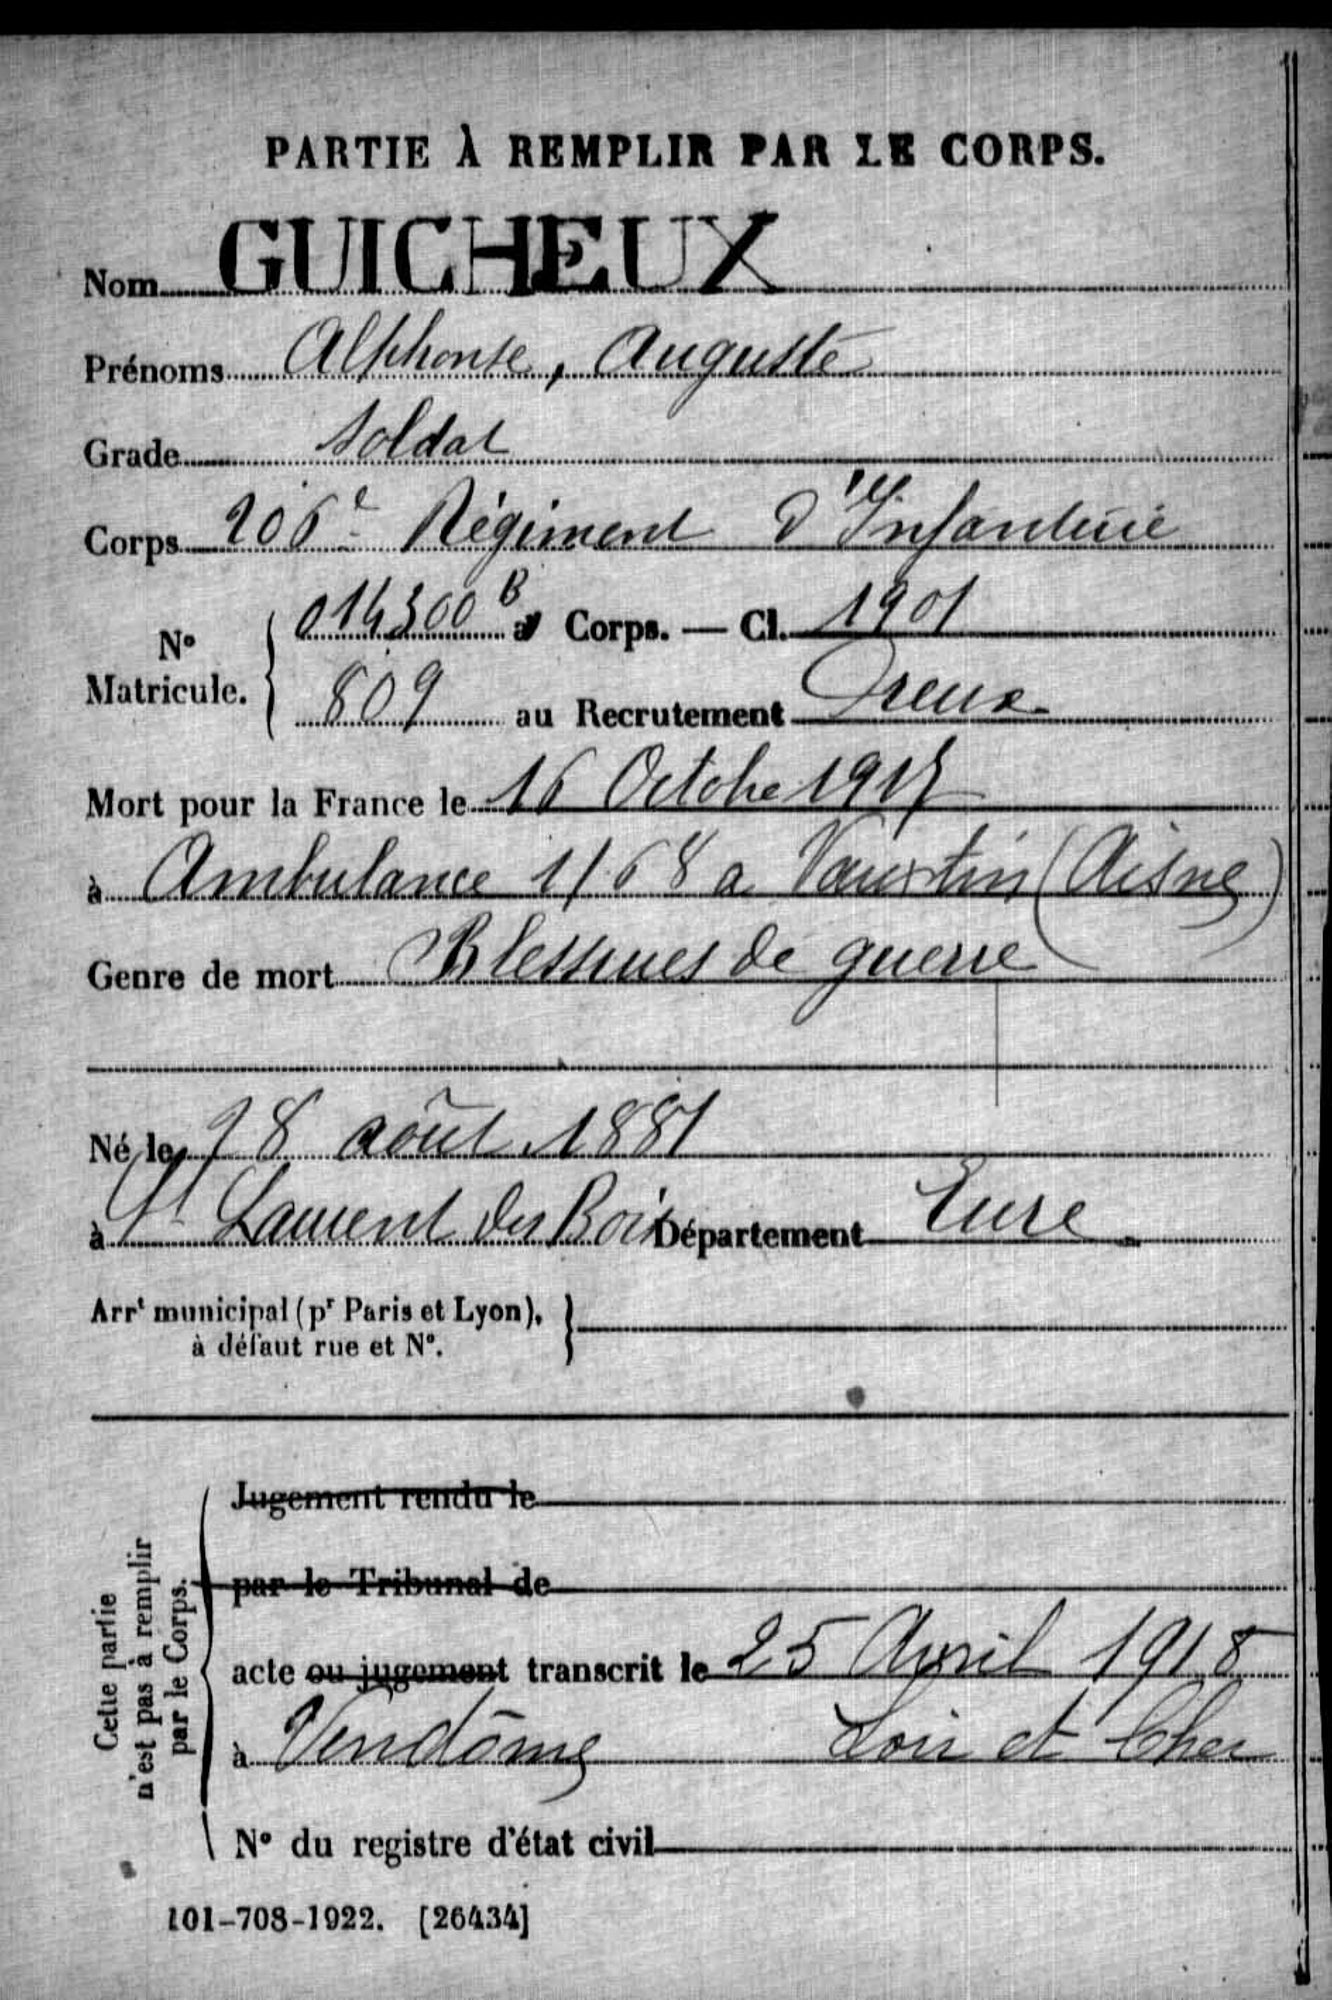 PARTIE À REMPLIR PAR LE CORPS.
Nom GUICHEUX
Prénoms Alphonse, Auguste
Grade Soldat
Corps 206e Régiment d'Infanterie
No Matricule. 014300 B au Corps. — Cl. 1901
809 au Recrutement Dreux
Mort pour la France le 16 Octobre 1917
à Ambulance 1/68 a Vauxtin (Aisne)
Genre de mort Blessures de guerre
Né le 28 août 1881
à St Laurent des Bois Département Eure
Arrt municipal (pr Paris et Lyon),
à défaut rue et No.
Cette partie
n'est pas à remplir
par le Corps.
Jugement rendu le
par le Tribunal de
acte ou jugement transcrit le 25 Avril 1918
à Vendôme Loir et Cher
No du registre d'état civil
101-708-1922. [26434]